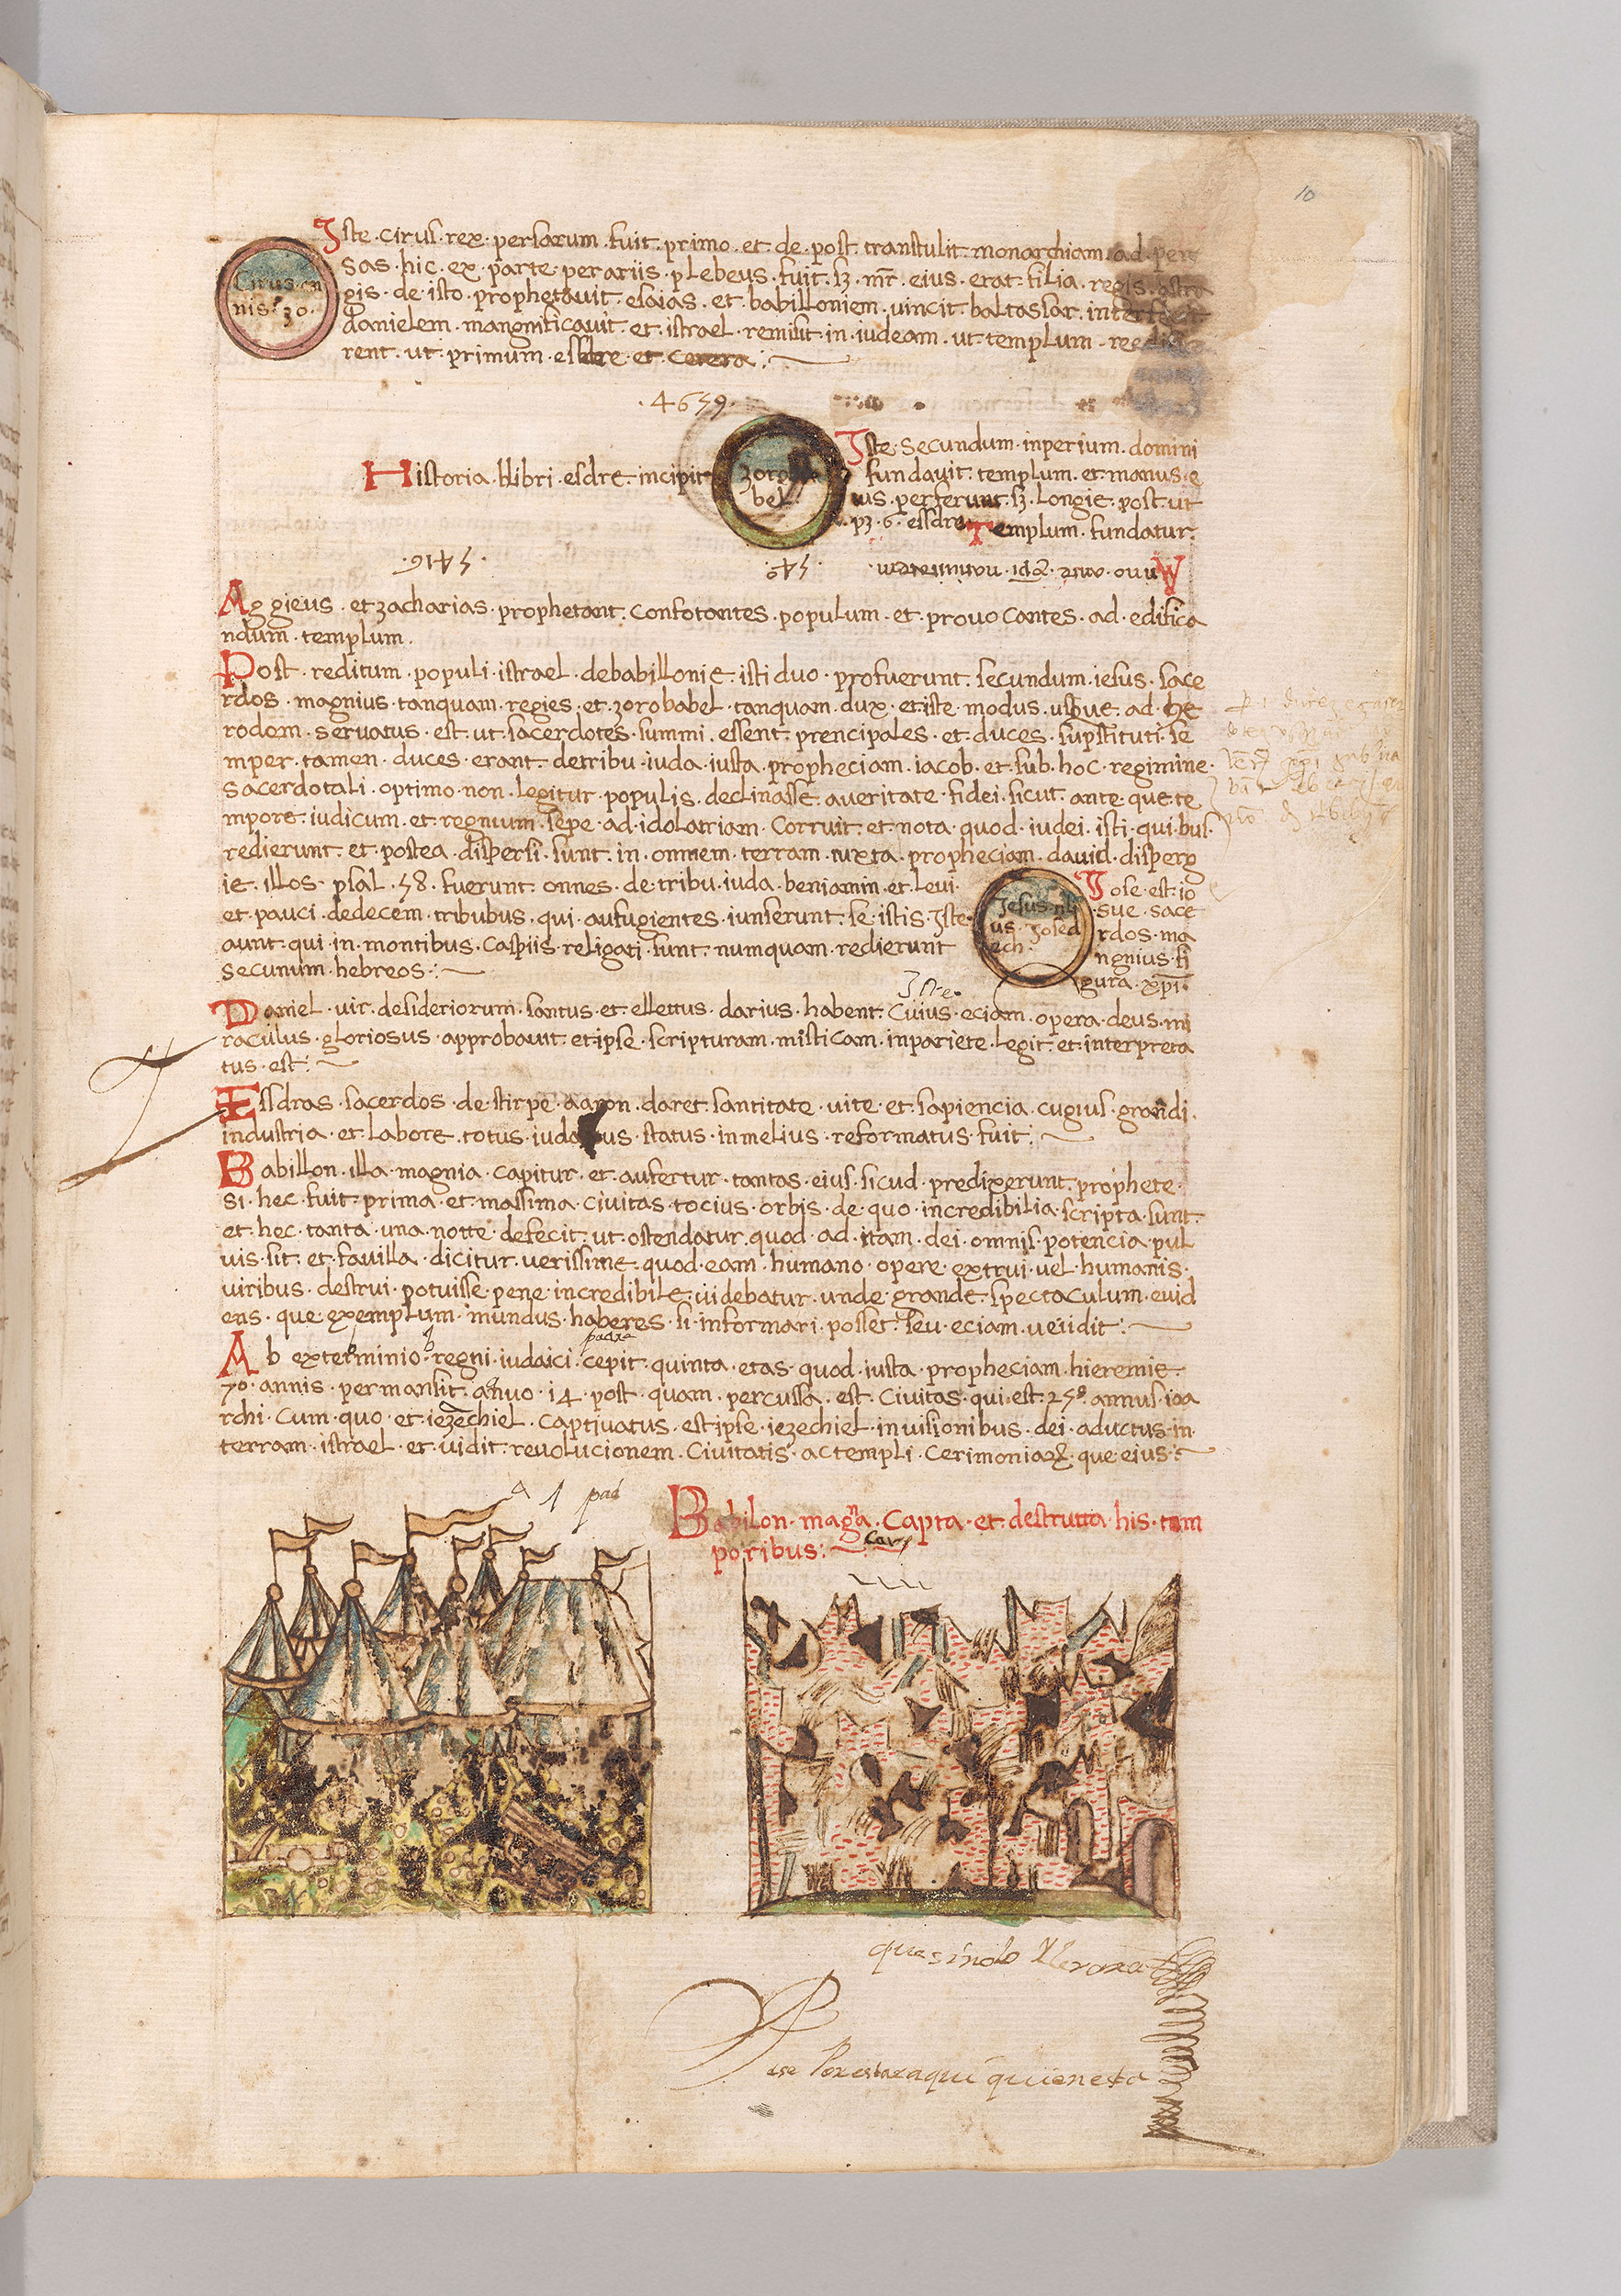 10
Iste · cirus · rex · persarum · fuit · primo · et · de · post · transtulit · monarchiam · ad · per
sas · hic · ex · parte · per ariis · plebeus · fuit · eius · erat · filia · regis
Cirus · an
nis · 30 ·
gis · de · isto · prophetavit · esaias · et · babilloniem · vincit · baltassar ·
danielem · mangnificauit · et · istrael · remisit · in · iudeam · ut · templum ·
rent · ut · primum · esdre · et · cetera :
· 4659 ·
Iste · secundum · inperium · domini
Historia · llibri · esdre · incipit
fundavit · templum · et · manus · e
ius · perferunt · longie · post · ut
· 6 · essdre Templum · fundatur ·
bel
· 5416 ·
· 540 ·
Aggieus · et zacharias · prophetant · Confotantes · populum · et · prouocantes · ad · edifica
ndum · templum ·
Post · reditum · populi · istrael · debabillonie · isti duo · profuerunt · secundum · iesus · sace
rdos · magnius · tanquam · regies · et · zorobabel · tanquam · dux · et iste · modus · usque · ad · he
rodem · seruatus · est · ut · sacerdotes · summi · essent · prencipales · et · duces · supstituti · se
mper · tamen · duces · erant · detribu · iuda · iusta · propheciam · iacob · et · sub · hoc · regimine ·
sacerdotali · optimo · non · legitur · populis · declinasse · aueritate · fidei · sicut · ante · que · te
mpore · iudicum · et · regnium · sepe · ad · idolatriam · Corruit · et · nota · quod · iudei · isti · qui · bus ·
redierunt · et · postea · dispersi · sunt · in · onmem · terram · iuxta · propheciam · dauid · disperg
ie · illos · psal · 58 · fuerunt · onnes · de · tribu · iuda · beniamin · et · leui ·
et · pauci · dedecem · tribubus · qui · aufugientes · iunserunt · se · istis · Iste ·
aunt · qui · in · montibus · Caspiis · religati · sunt · numquam · redierunt
secunum · hebreos :
Jesus
us · Josed
ech ·
Iose · est · io
sue · sace
rdos · ma
ngnius · fi
gura · xpi ·
Iste ·
Daniel · vir · desideriorum · santus · et · ellettus · darius · habent · Cuius · eciam · opera · deus · mi
raculus · gloriosus · approbauit · et ipse · scripturam · misticam · inpariete · legit · et · interpreta
tus · est :
Essdras · sacerdos · de · stirpe · aaron · daret · santitate · uite · et · sapiencia · cugius · grandi ·
industria · et · labore · totus · status · inmelius · reformatus · fuit :
Babillon · illa · magnia · capitur · et · aufertur · tantas · eius · sicud · predixerunt · prophete ·
si · hec · fuit · prima · et · massima · Ciuitas · tocius · orbis · de · quo · incredibilia · scripta · sunt ·
et · hec · tanta · una · notte · defecit · ut · ostendatur · quod · ad · itam · dei · omnis · potencia · pul
uis · sit · et · fauilla · dicitur · uerissime · quod · eam · humano · opere · extrui · uel · humanis ·
uiribus · destrui · potuisse · pene · incredibile · uidebatur · unde · grande · spectaculum · euid
ens · que · exemplum · mundus · haberes · si · informari · posset · seu · eciam ·
padre
Ab exterminio · regni · iudaici · cepit · quinta · etas · quod · iusta · propheciam · hieremie ·
70 · annis · permansit · anuo · 14 · post · quam · percussa · est · Ciuitas · qui · est · annus · ioa
rchi · Cum · quo · et · iezechiel · Captiuatus · est ipse · iezechiel · inuisionibus · dei · aductus · in ·
terram · istrael · et · uidit · reuolucionem · Ciuitatis · ac templi · Cerimonia · que · eius ·
Babilon · magna · Capta · et · destrutta · his · tem
poribus :